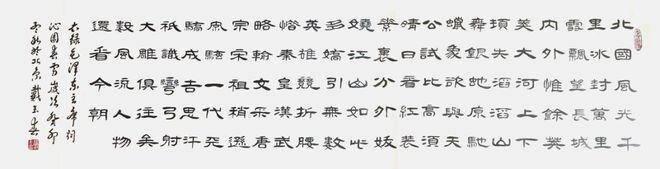 北國風光千
里冰封萬里
雪飄望長城
內外惟餘莽
莽大河上下
頓失滔滔山
舞銀蛇原馳
蠟象欲與天
公試比高須
晴日看紅裝
素裹分外妖
嬈江山如此
多嬌引無數
英雄競折腰
惜秦皇漢武
略輸文采唐
宗宋祖稍遜
風騷一代天
驕成吉思汗
祇識彎弓射
大雕俱往矣
數風流人物
還看今朝
右錄毛澤東主席詞
沁園春雪歲次癸卯
於北京戴玉